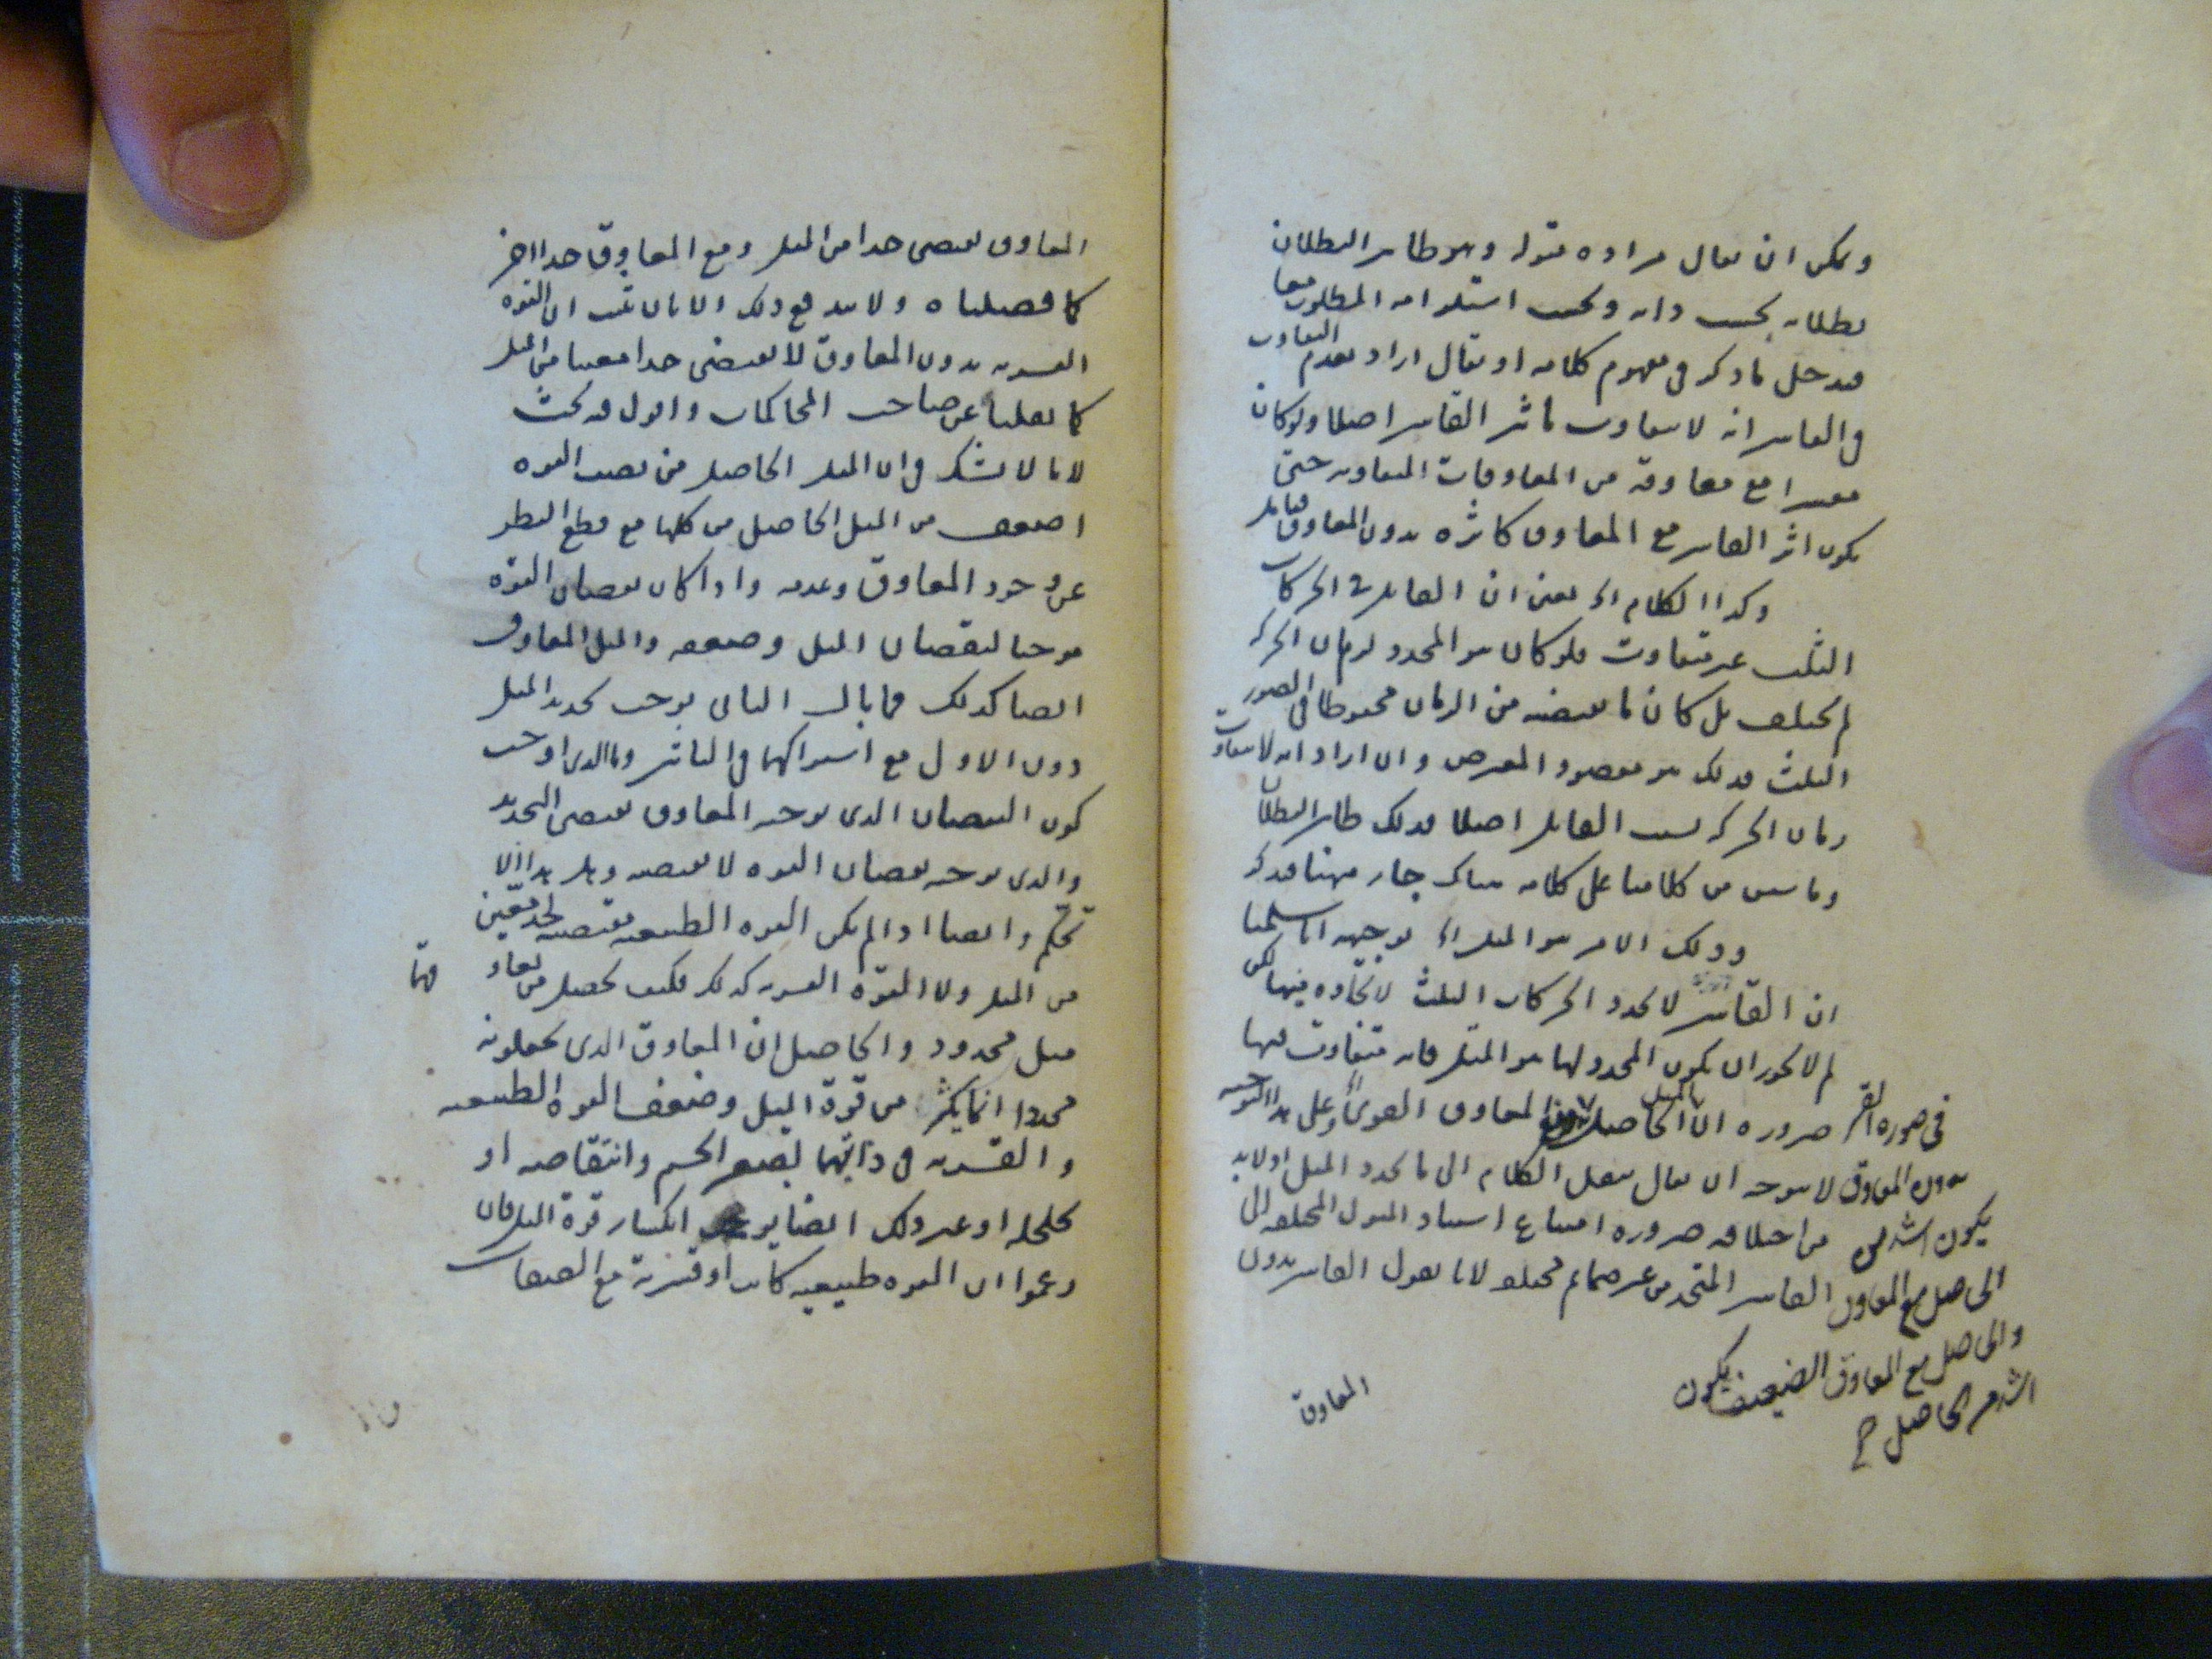 ويمكن ان يقال مراده بقوله وهو ظاهر البطلان
بطلانه بحسب ذاته وبحسب استلزامه المطلوب معا
فيدخل ما ذكر في مفهوم كلامه او يقال اراد بعدم التفاوت
في القاسر انه لا يتفاوت تاثير القاسر اصلا ولو كان
مع معاوقة من المعاوقات المتفاوتة حتى
يكون اثر القاسر مع المعاوق كاثره بدون المعاوق
وكذا الكلام الخ يعنى ان القابل في الحركات
الثلث غير متفاوت فلو كان هو المحدد لزمان الحركة
لم يختلف بل كان ما يقتضيه من الزمان محفوظا في الصور
الثلث فذلك هو مقصود المعترض وان اراد انه لا يتفاوت
زمان الحركة بسبب القابل اصلا فذلك ظاهر البطلان
وما سبق من كلامنا على كلامه هناك جار ههنا فتذكر
وذلك الامر هو الميل الخ توجيهه انا سلمنا
ان القاسر لا يحدد الحركات الثلث لاتحاده فيها لكن
لم لا يجوز ان يكون المحدد لها هو الميل فانه متفاوت فيها
في صورة ضرورة ان الميل الحاصل المعاوق القوى وعلى هذا التوجيه
بدون المعاوق لا يتوجه ان يقال ننقل الكلام الى ما يحدد الميل اذ لا بد
يكون اشد من اختلافه ضرورة امتناع استناد الميول المختلفة الى
الحاصل مع المعاوق القاسر المتحد من غير مختلف لانا نقول القاسر بدون
والحاصل مع المعاوق الضعيف يكون
اشد من الحاصل ح
المعاوق
المعاوق يقتضى حدا من الميل ومع المعاوق حدا اخر
كما فصلناه ولا يندفع ذلك الا بان يثبت ان القوة
القسرية بدون المعاوق لا يقتضى حدا معينا من الميل
كما نقلنا عن صاحب المحاكمات واقول فيه بحث
لانا لا نشك في ان الميل الحاصل من نصف القوة
اضعف من الميل الحاصل من كلها مع قطع النظر
عن وجود المعاوق وعدمه واذا كان نقصان القوة
موجبا لنقصان الميل وضعفه والميل المعاوق
ايضا كذلك فما بال الثانى يوجب تحديد الميل
دون الاول مع اشتراكهما في التاثير وما الذى اوجب
كون النقصان الذى يوجبه المعاوق يقتضى التحديد
والذى يوجبه نقصان القوة لا يقتضيه وهل هذا الا
تحكم وايضا اذا لم يكن القوة الطبيعية مقتضية لحد معين
من الميل ولا القوة القسرية كذلك فكيف يحصل من
ميل محدود والحاصل ان المعاوق الذى يجعلونه
محددا انما يكثر من قوة الميل وضعف القوة الطبيعية
والقسرية في ذاتهما لصغر الجسم وانتقاصه او
تخلخله او غير ذلك ايضا يوجب انكسار قوة الميل فان
زعموا ان القوة طبيعية كانت او قسرية مع الصفات